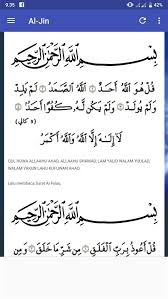 9.35
Al-Jin
بِسْمِ اللّٰهِ الرَّحْمٰنِ الرَّحِيْمِ
قُلْ هُوَ اللّٰهُ اَحَدٌ ۝ اَللّٰهُ الصَّمَدُ ۝ لَمْ يَلِدْ
وَلَمْ يُوْلَدْ ۝ وَلَمْ يَكُنْ لَّهُ كُفُوًا اَحَدٌ ۝ (٣ كالي)
لَا اِلٰهَ اِلَّا اللّٰهُ وَاللّٰهُ اَكْبَرُ
QUL HUWA ALLAAHU AHAD, ALLAAHU SHAMAD, LAM YALID WALAM YUULAD,
WALAM YAKUN LAHU KUFUWAN AHAD
Lalu membaca Surat Al-Falaq,
بِسْمِ اللّٰهِ الرَّحْمٰنِ الرَّحِيْمِ
قُلْ اَعُوْذُ بِرَبِّ الْفَلَقِ ۝ مِنْ شَرِّ مَا خَلَقَ